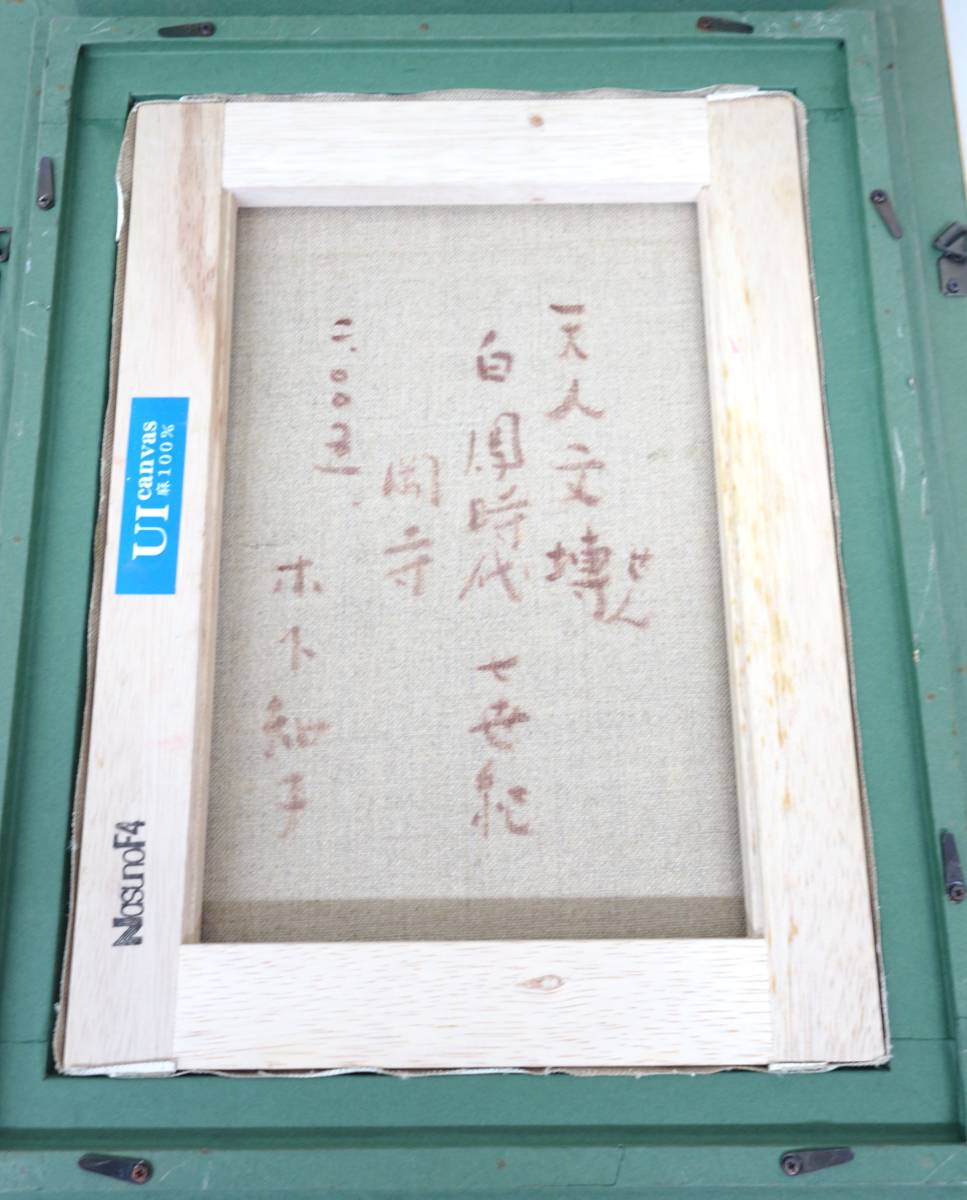 天人文塼
せん
白鳳時代 七世紀
岡寺
二.〇〇五.
木下
UI canvas
麻100%
NasunoF4